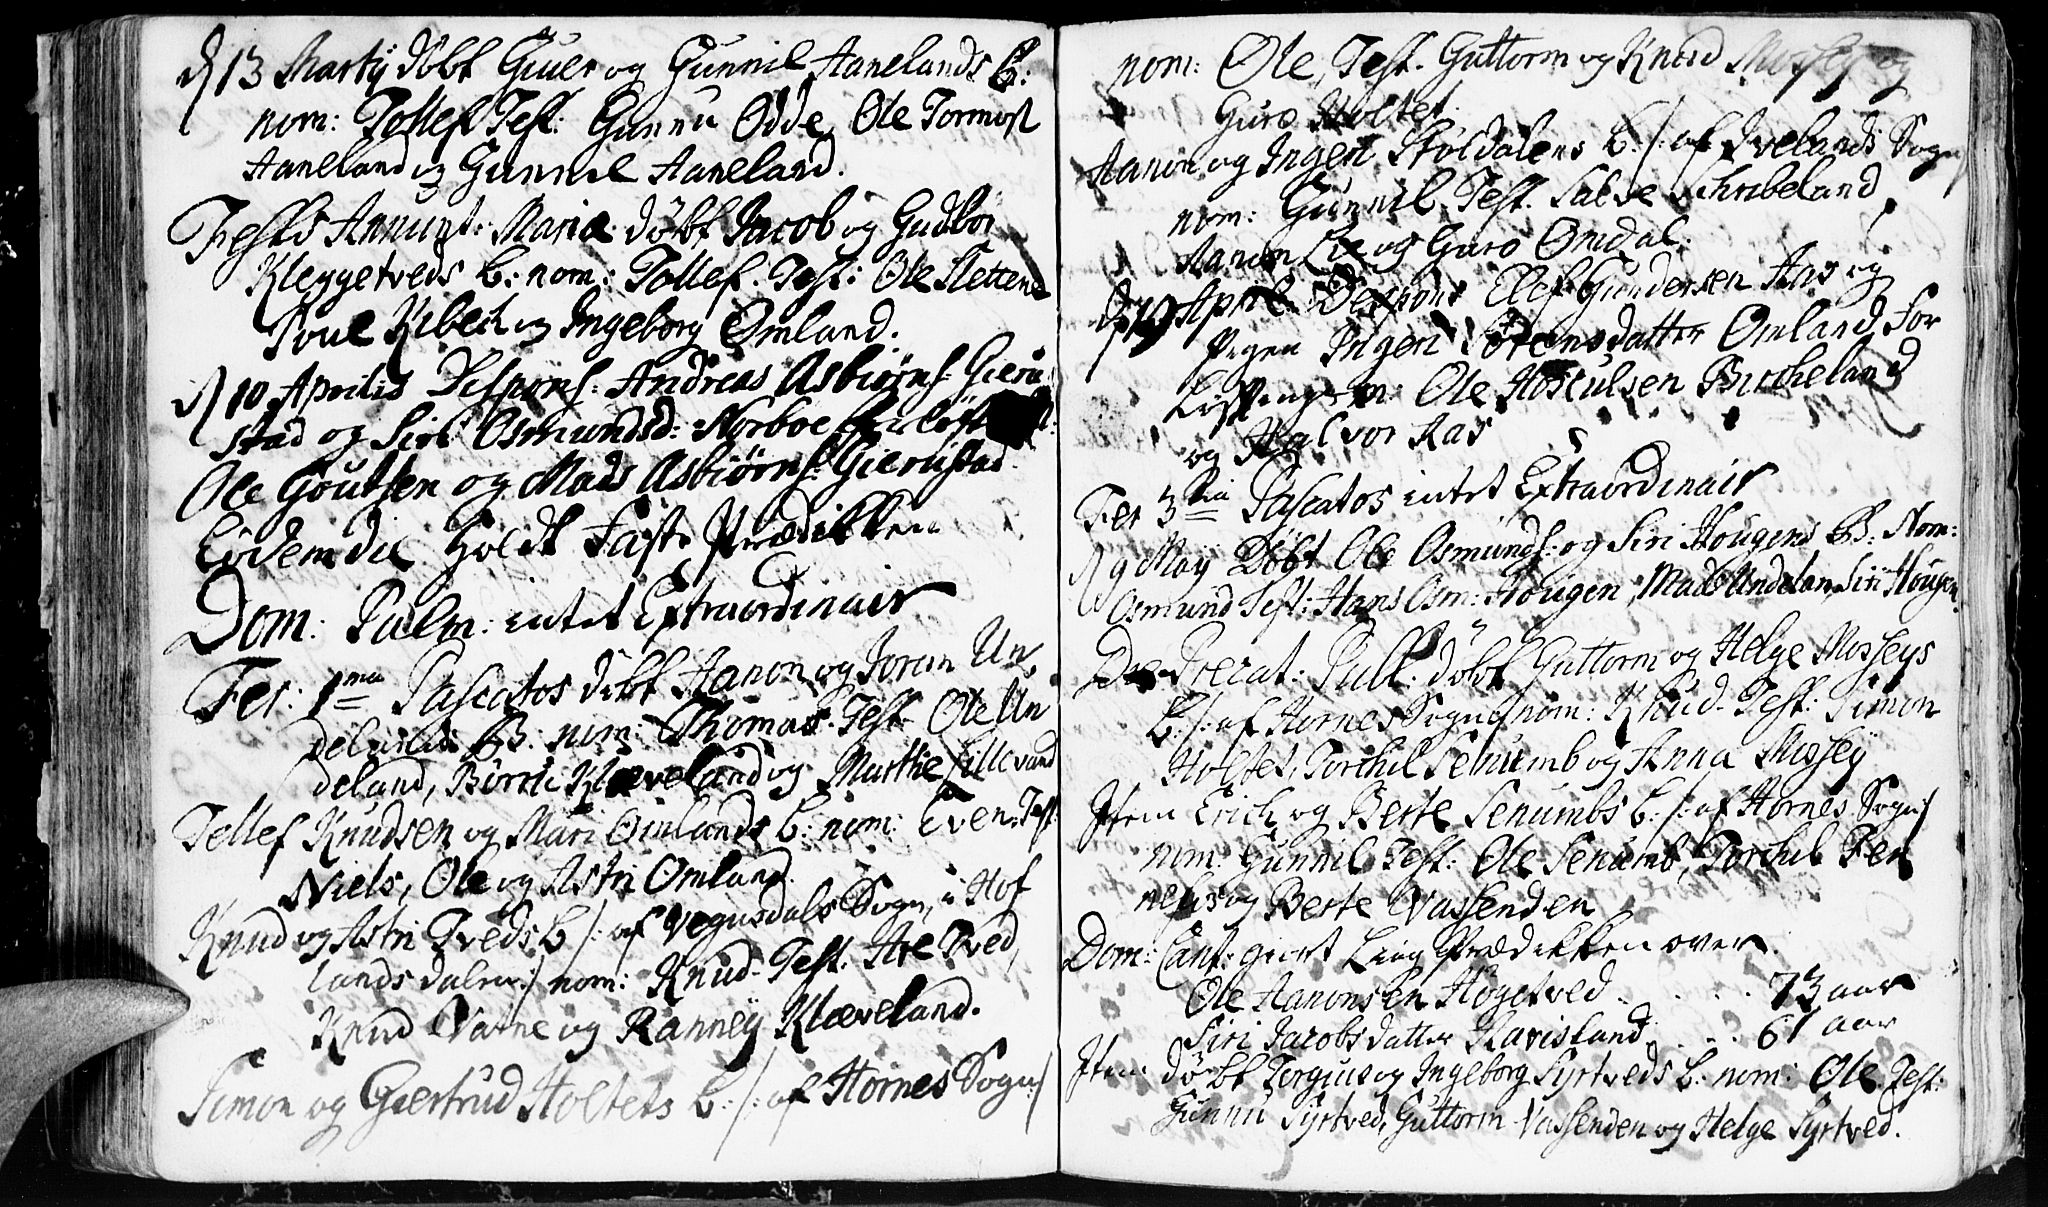 d 13 Martij døbt Giuer og Gunnil Aanelands B:
nom: Tollef Test: Gunnu Odde, Ole Tormost
Aaneland og Gunnil Aaneland.
Festo Annunt: Mariæ: døbt Jacob og Gudbor
Kleggetveds b: nom: Tollef. Test: Ole Slettene
Poul Kibech og Ingeborg Omland.
d 10 Aprilis Despons: Andreas Asbiørns: Gieru
stad og Siri Osmundsd: Norboe
Ole Goutsen og Mads Asbiørns: Gierustad
Eodem die Holdt Faste Prædikken
Dom: Palm: intet Extraordinair
Fer: 1ma Pascatos døbt Aanon og Joren Un
delands B: nom: Thomas. Test Ole Un
deland, Børte Klæveland og Marthe Lillevand
Tellef Knudsen og Mari Omlands b: nom: Even. Test
Niels, Ole og Astri Omland.
Knud og Astri Tveds b /: af Vegusdals Sogn, i Hof
lands dalen:/ nom: Knud. Test. Are Tved,
Knud Vatne og Ranneÿ Klæveland.
Simon og Giertrud Holtets b: /: af Hornes Sogn:/
nom: Ole, Test. Guttorm og Knud Mossey og
Guro Holtet.
Aanon og Ingeri Støldalens b: /: af Ivelands Sogn/
nom: Gunnil. Test. Salve Schribeland,
Aanon Lie og Guro Omdal.
d 19 April Despons Elef Gundersen Aas og
Pigen Ingeri Olensdatter Omland. For
Løftingsm: Ole Aosculsen Bircheland
og Halvor Aas
Fer 3tia Pascatos intet Extraordinair
d 9 Maÿ Døbt Ole Osmunds: og Siri Hougens B: Nom:
Osmund Test: Hans Osm: Hougen, Mads Undelan, Siri Hougen.
Die Precat: Publ: døbt Guttorm og Helge Mosseys
b: /: af Hornes Sogn/ nom: Knud. Test: Simon
Holtet, Torchil Senumb og Anna Mossey
Item Erich og Berte Senumbs b: /: af Hornes Sogn:/
nom: Gunnil Test: Ole Senumb, Torchil Fen
og Berte Vassenden
Dom: Cant: giort Liig Prædikken over
Ole Aanonsen Høgetved . . . . . 73 aar
Siri Jacobsdatter Ravisland. . . . 61 aar
Item døbt Torgius og Ingeborg Syrtveds b: nom: Ole. Test:
Gunnu Syrtved, Guttorm Vassenden og Helge Syrtved.